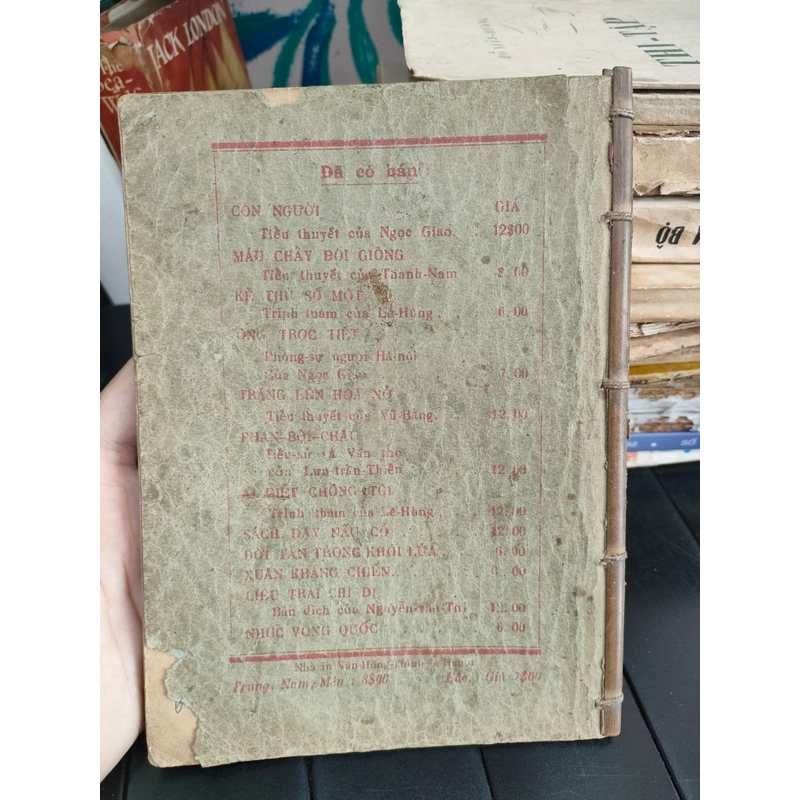 JACK LONDON
The
Sea-
THI-TẬP
BỘ
Đã có bán:
CON NGƯỜI GIÁ
Tiểu thuyết của Ngọc Giao. . 12$00
MÁU CHẢY ĐÔI GIÒNG
Tiểu thuyết của Thanh-Nam 8,00
KẺ THÙ SỐ MỘT
Trinh thám của Lê-Hùng . . 6,00
ÔNG TRỌC TIẾT
Phóng-sự người Hà-nội
Của Ngọc Giao 7,00
TRĂNG LÊN HOA NỞ
Tiểu thuyết của Vũ-Bằng. . . 12,00
PHAN-BỘI-CHÂU
Tiểu-sử và Văn thơ
của Lưu-trần-Thiện 12,00
AI GIẾT CHỒNG TÔI
Trinh thám của Lê-Hùng . . 12,00
SÁCH DẠY NẤU CỖ 12,00
ĐỜI TÀN TRONG KHÓI LỬA . . 6,00
XUÂN KHÁNG CHIẾN. . 6,00
LIÊU TRAI CHÍ DỊ
Bản dịch của 12,00
NHỤC VONG QUỐC 6,00
Nhà in Văn-Hồng-Thịnh Hanoi
Trung, Nam, Mên : 8$00 Giá 7$00